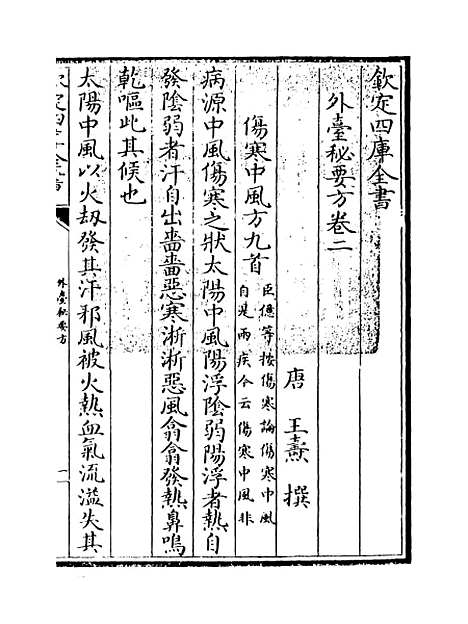 欽定四庫全書
外臺秘要方卷二
唐 王燾 撰
傷寒中風方九首
臣億等按傷寒論傷寒中風
自是兩疾今云傷寒中風非
病源中風傷寒之狀太陽中風陽浮陰弱陽浮者熱自
發陰弱者汗自出嗇嗇惡寒淅淅惡風翕翕發熱鼻鳴
乾嘔此其候也
太陽中風以火劫發其汗邪風被火熱血氣流溢失其
欽定四庫全書
外臺秘要方